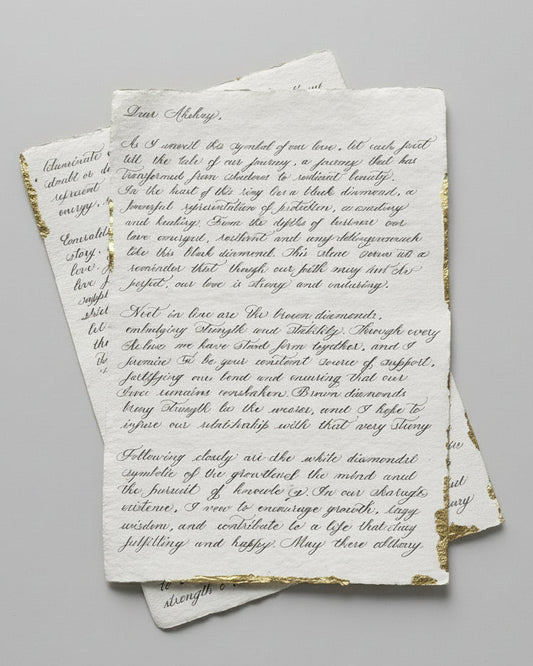 Dear
As I unveil this symbol of our love, let each facet
tell the tale of our journey, a journey that has
transformed from shadows to radiant beauty.
In the heart of this ring lies a black diamond, a
powerful representation of protection,
and healing. From the depths of
love emerged, resilient and
like this black diamond. This stone
reminder that though our path may
perfect, our love is strong and enduring.
Next in line are the brown diamonds,
embodying strength and stability. Through every
we have stood firm together, and I
promise to be your constant source of support,
fortifying our bond and ensuring that our
love remains unshaken. Brown diamonds
bring strength to the wearer, and I hope to
infuse our relationship with that very strong
Following closely are the white diamonds
symbolic of the growth of the mind and
the pursuit of In our
existence, I vow to encourage growth,
wisdom, and contribute to a life that
fulfilling and happy. May
illuminate
doubt or
represent
energy,
story.
love
love
let
strength